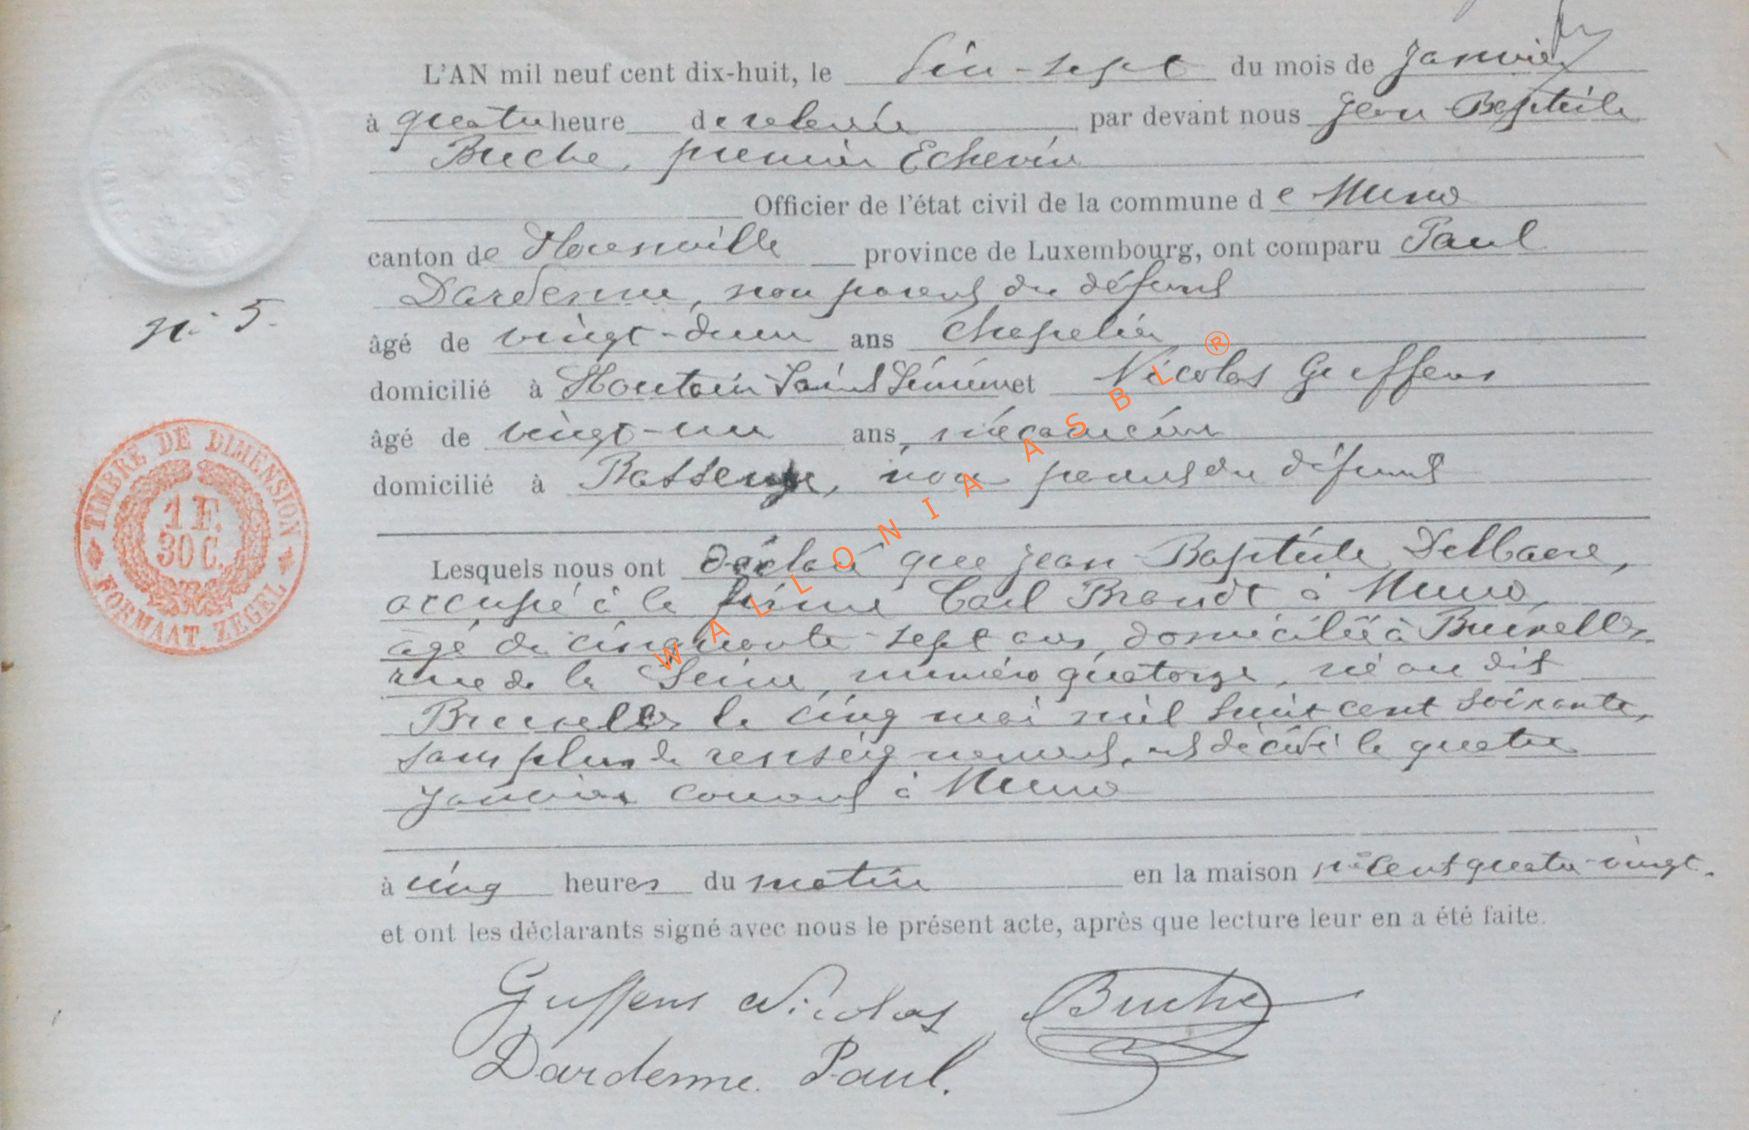 L'AN mil neuf cent dix-huit, le dix-sept du mois de Janvier
à quatre heure de relevée par devant nous Jean Baptiste
Buche, premier Echevin
Officier de l'état civil de la commune de Muno
canton de Florenville province de Luxembourg, ont comparu Paul
Dardenne, non parent du défunt
N° 5.
âgé de vingt-deux ans Chapelier
domicilié à Houtain Saint Siméon et Nicolas Guffens
âgé de vingt-un ans, mécanicien
domicilié à Bassenge, non parent du défunt
TIMBRE DE DIMENSION
1 F.
30 C.
FORMAAT ZEGEL
Lesquels nous ont déclaré que Jean Baptiste Delbaere,
occupé à la firme Carl Brandt à Muno,
âgé de cinquante-sept ans, domicilié à Bruxelles
rue de la Senne, numéro quatorze, né au dit
Bruxelles le cinq mai mil huit cent soixante,
sans plus de renseignements, est décédé le quatre
Janvier courant à Muno
à cinq heures du matin en la maison n° cent quatre-vingt.
et ont les déclarants signé avec nous le présent acte, après que lecture leur en a été faite.
Guffens Nicolas Buche
Dardenne Paul.
WALLONIA ASBL ®